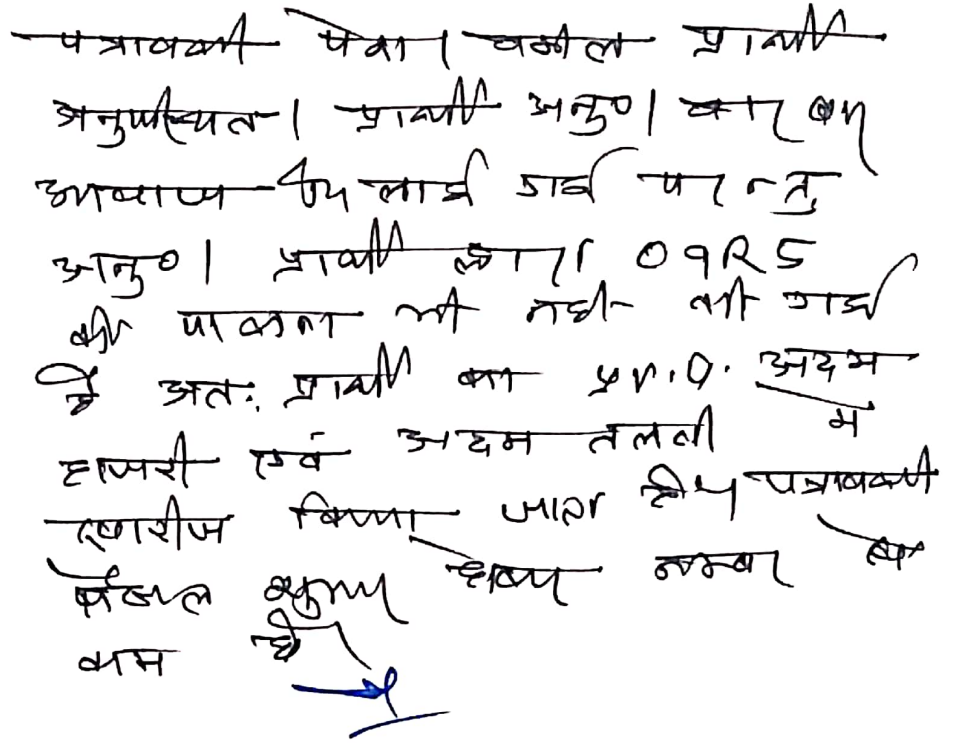 पत्रावली पेश। वकील प्रार्थी
अनुपस्थित। प्रार्थी अनु०। बार बार
आवाज लगाई गई परन्तु
अनु०। प्रार्थी द्वारा 09R5
की पालना भी नहीं की गई
है अतः प्रार्थी का प्रा.प. अदम
हाजरी एवं अदम तलबी में
खारीज किया जाता है पत्रावली
फैसल शुमार होकर नम्बर से
कम हो